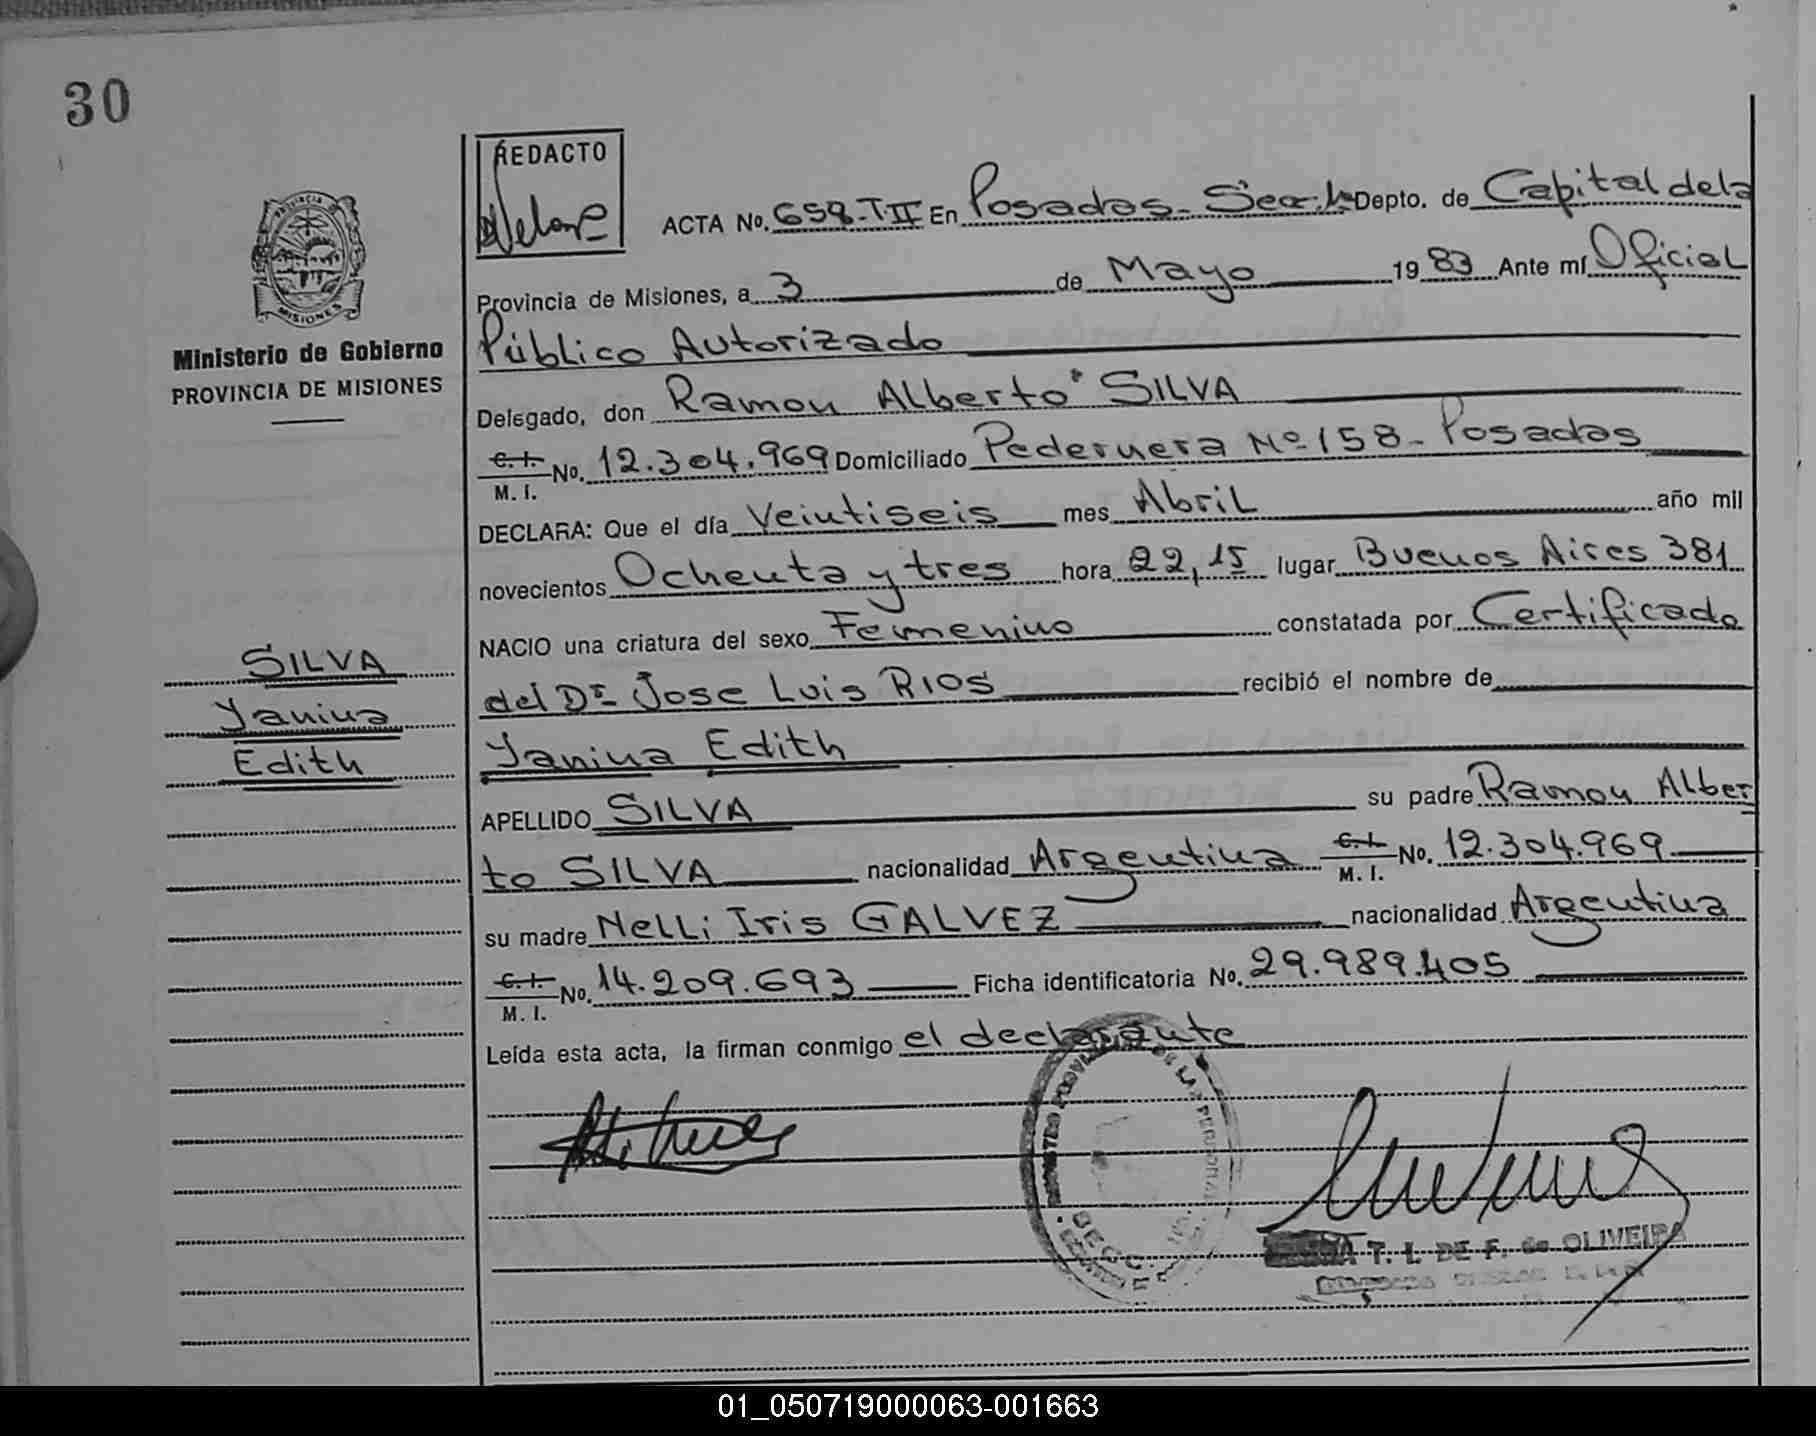 30
REDACTO
ACTA No. 658-T-II En Posadas- Secc. 1a Depto. de Capital de la
Provincia de Misiones, a 3 de Mayo 1983 Ante mí Oficial
Público Autorizado
Delegado, don Ramon Alberto SILVA
C.I. No. 12.304.969 Domiciliado Pedernera Nº 158- Posadas
M. I.
DECLARA: Que el día Veintiseis mes Abril año mil
novecientos Ochenta y tres hora 22,15 lugar Buenos Aires 381
NACIO una criatura del sexo Femenino constatada por Certificado
del Dr Jose Luis RIOS recibió el nombre de
Yanina Edith
APELLIDO SILVA su padre Ramon Alber
to SILVA nacionalidad Argentina C.I. No. 12.304.969
M. I.
su madre Nelli Iris GALVEZ nacionalidad Argentina
C.I. No. 14.209.693 Ficha identificatoria No. 29.989.405
M. I.
Leída esta acta, la firman conmigo el declarante
T. L. DE F. de OLIVEIRA
PROVINCIA DE
MISIONES
Ministerio de Gobierno
PROVINCIA DE MISIONES
SILVA
Yanina
Edith
01_050719000063-001663